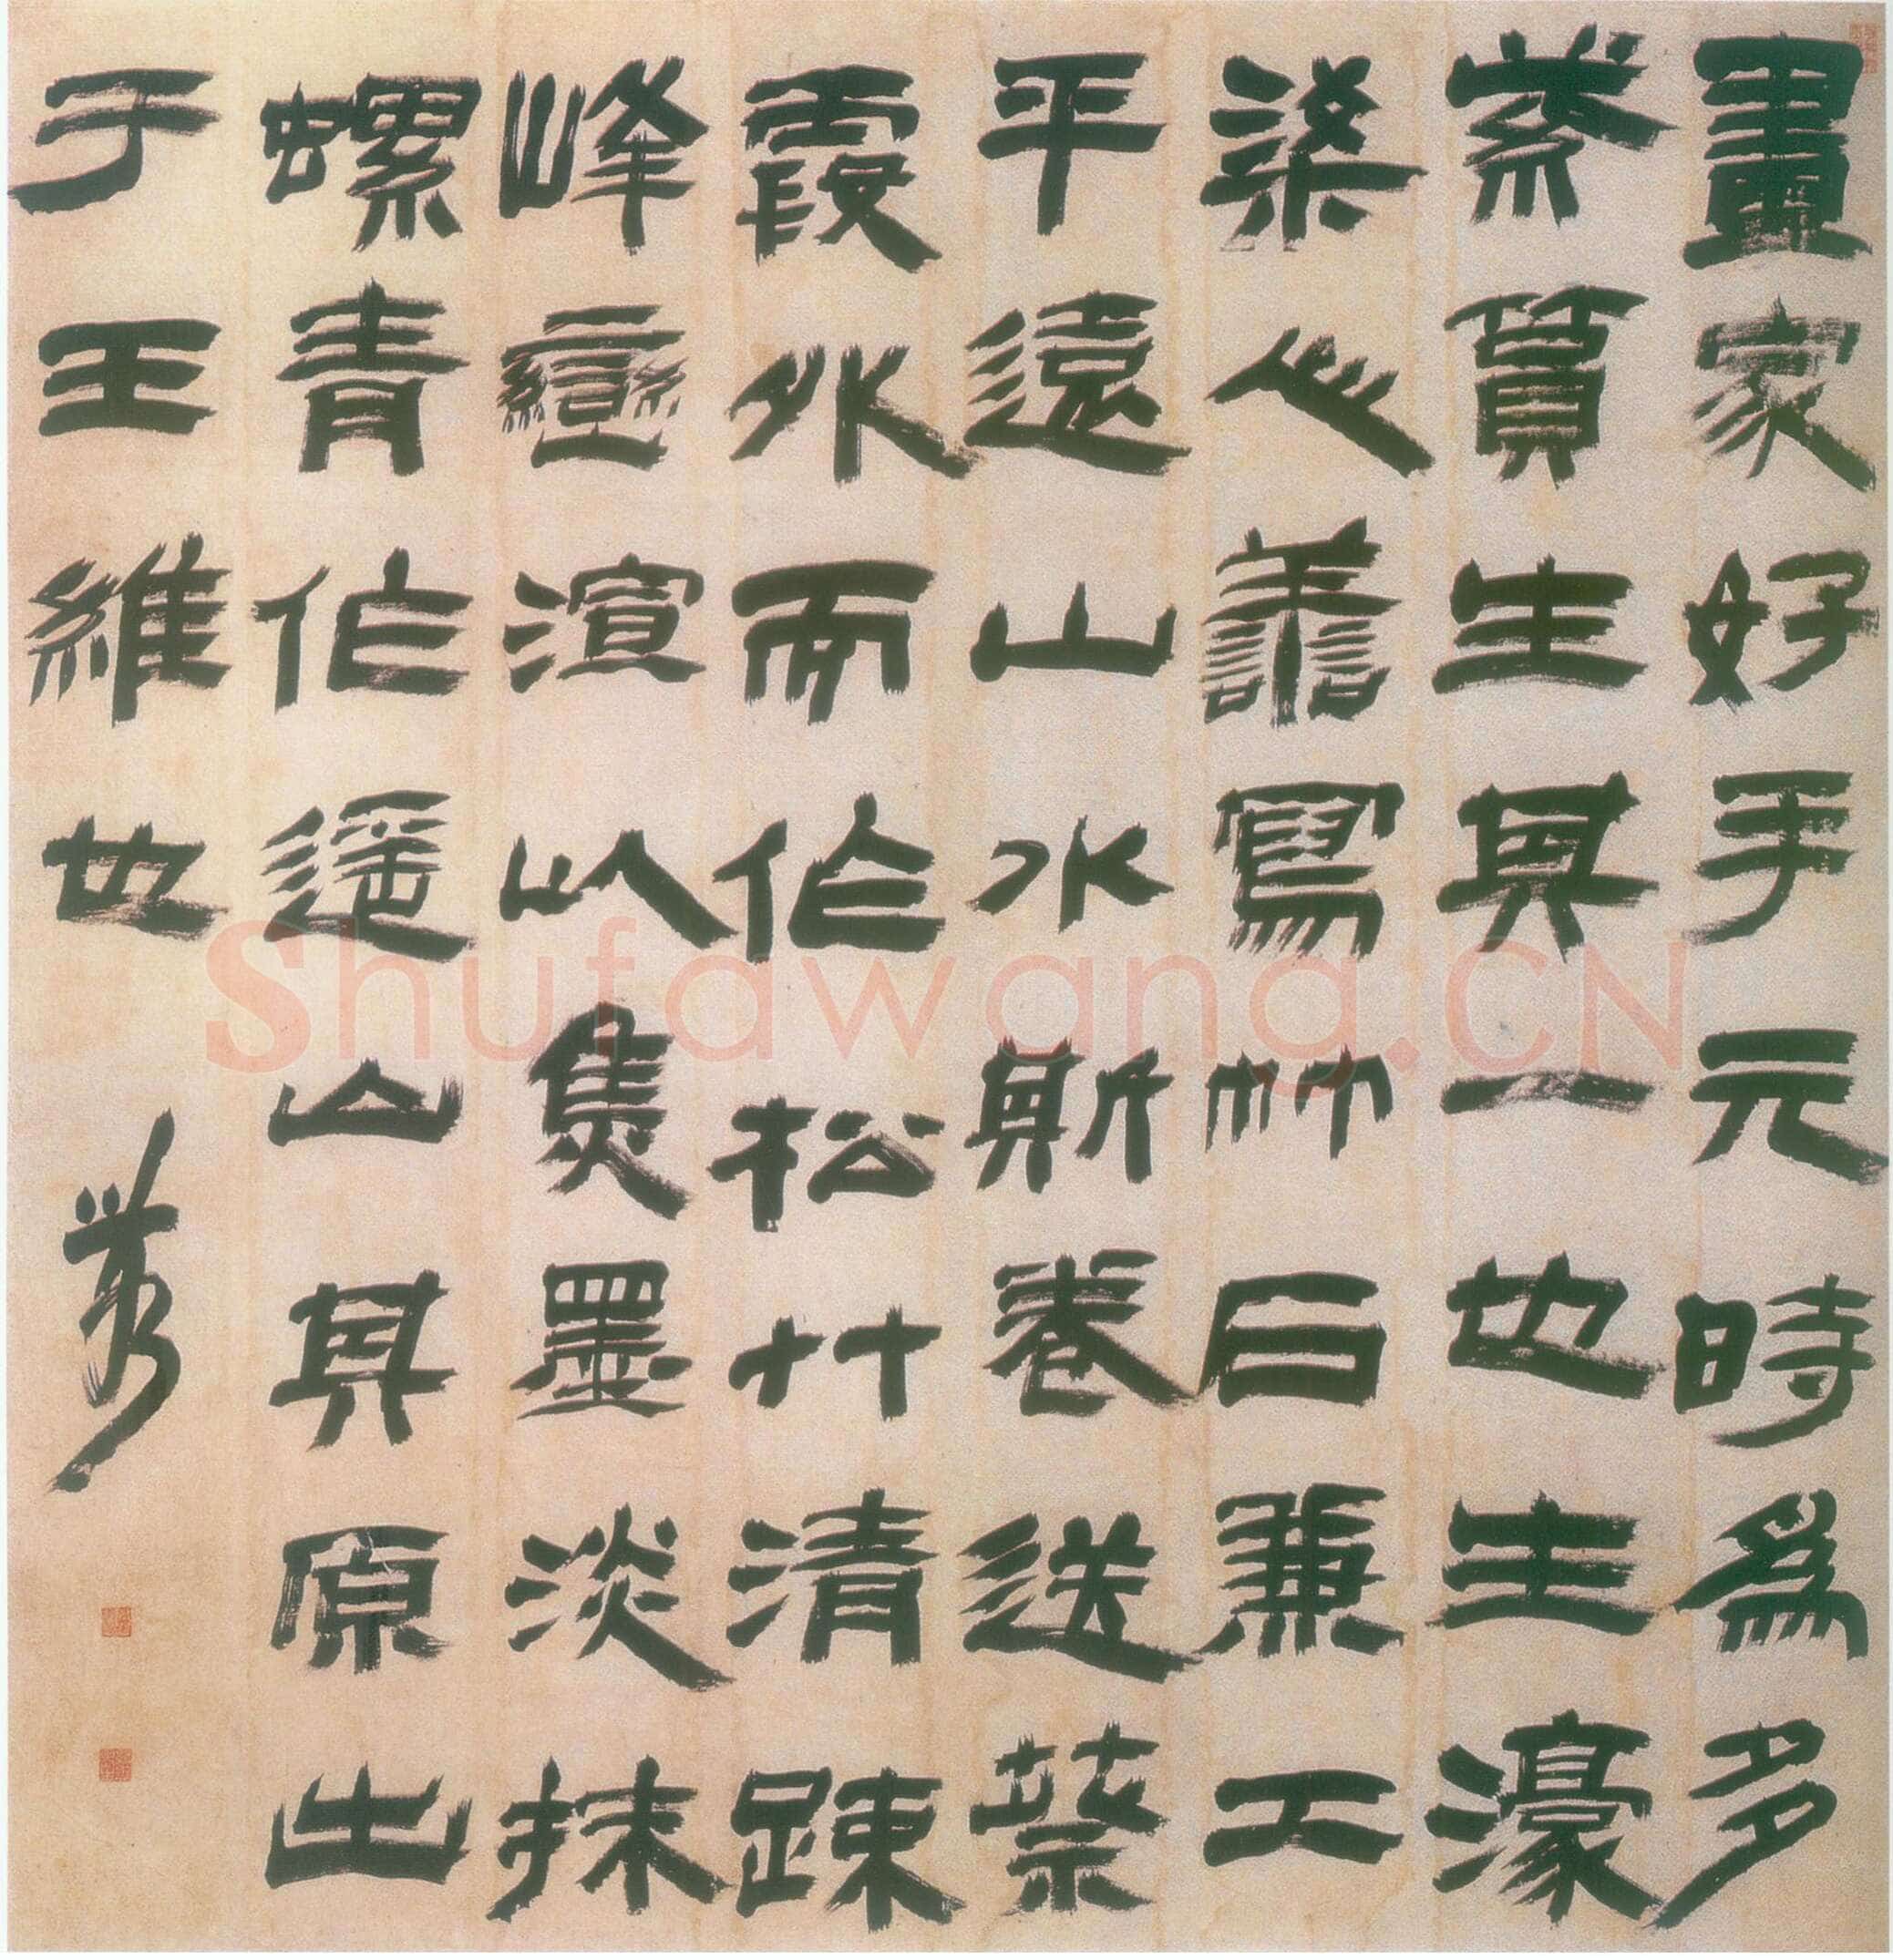 畫家好手元時為多
生其一也生濠
梁心善寫竹石兼工
平遠山水斯卷送
霞外而作松艸清踈
峰巒渲以雋墨淡抹
螺青作遥山其原出
于王維也
Shufawang.CN